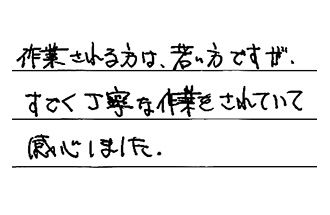 作業される方は、若い方ですが、
すごく丁寧な作業をされていて
感心しました。